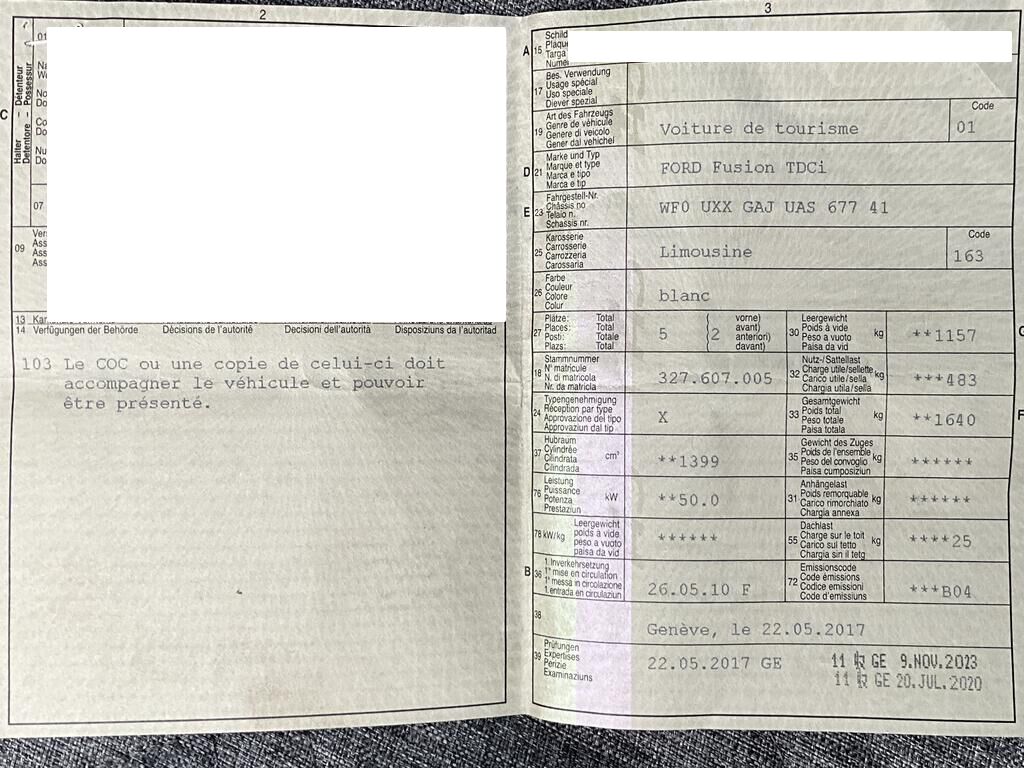 2
C
Halter – Détenteur
Detentore – Possessur
01
07
09
Ass
Ass
Ass
13
14 Verfügungen der Behörde Décisions de l'autorité Decisioni dell'autorità Disposiziuns da l'autoritad
103 Le COC ou une copie de celui-ci doit
accompagner le véhicule et pouvoir
être présenté.
3
A 15 Schild
Targa
17 Bes. Verwendung
Usage spécial
Uso speciale
Diever spezial
19 Art des Fahrzeugs
Genre de véhicule
Genere di veicolo
Gener dal vehichel
Voiture de tourisme
Code
01
D 21 Marke und Typ
Marque et type
Marca e tipo
Marca e tip
FORD Fusion TDCi
E 23 Fahrgestell-Nr.
Châssis no
Telaio n.
Schassis nr.
WF0 UXX GAJ UAS 677 41
25 Karosserie
Carrosserie
Carrozzeria
Carossaria
Limousine
Code
163
26 Farbe
Couleur
Colore
Colur
blanc
27 Plätze: Total
Places: Total
Posti: Totale
Plazs: Total
5
2
vorne)
avant)
anteriori)
davant)
30 Leergewicht
Poids à vide
Peso a vuoto
Paisa da vid
kg
**1157
18 Stammnummer
N° matricule
N. di matricola
Nr. da matricla
327.607.005
32 Nutz-/Sattellast
Charge utile/sellette
Carico utile/sella
Chargia utila/sella
kg
***483
24 Typengenehmigung
Réception par type
Approvazione del tipo
Approvaziun dal tip
X
33 Gesamtgewicht
Poids total
Peso totale
Paisa totala
kg
**1640
F
37 Hubraum
Cylindrée
Cilindrata
Cilindrada
cm³
**1399
35 Gewicht des Zuges
Poids de l'ensemble
Peso del convoglio
Paisa cumposiziun
kg
******
76 Leistung
Puissance
Potenza
Prestaziun
kW
**50.0
31 Anhängelast
Poids remorquable
Carico rimorchiato
Chargia annexa
kg
******
78 kW/kg
Leergewicht
poids à vide
peso a vuoto
paisa da vid
******
55 Dachlast
Charge sur le toit
Carico sul tetto
Chargia sin il tetg
kg
****25
B 36 1. Inverkehrsetzung
1re mise en circulation
1a messa in circolazione
1. entrada en circulaziun
26.05.10 F
72 Emissionscode
Code émissions
Codice emissioni
Code d'emissiuns
***B04
38
Genève, le 22.05.2017
39 Prüfungen
Expertises
Perizie
Examinaziuns
22.05.2017 GE
11 GE 9.NOV.2023
11 GE 20.JUL.2020